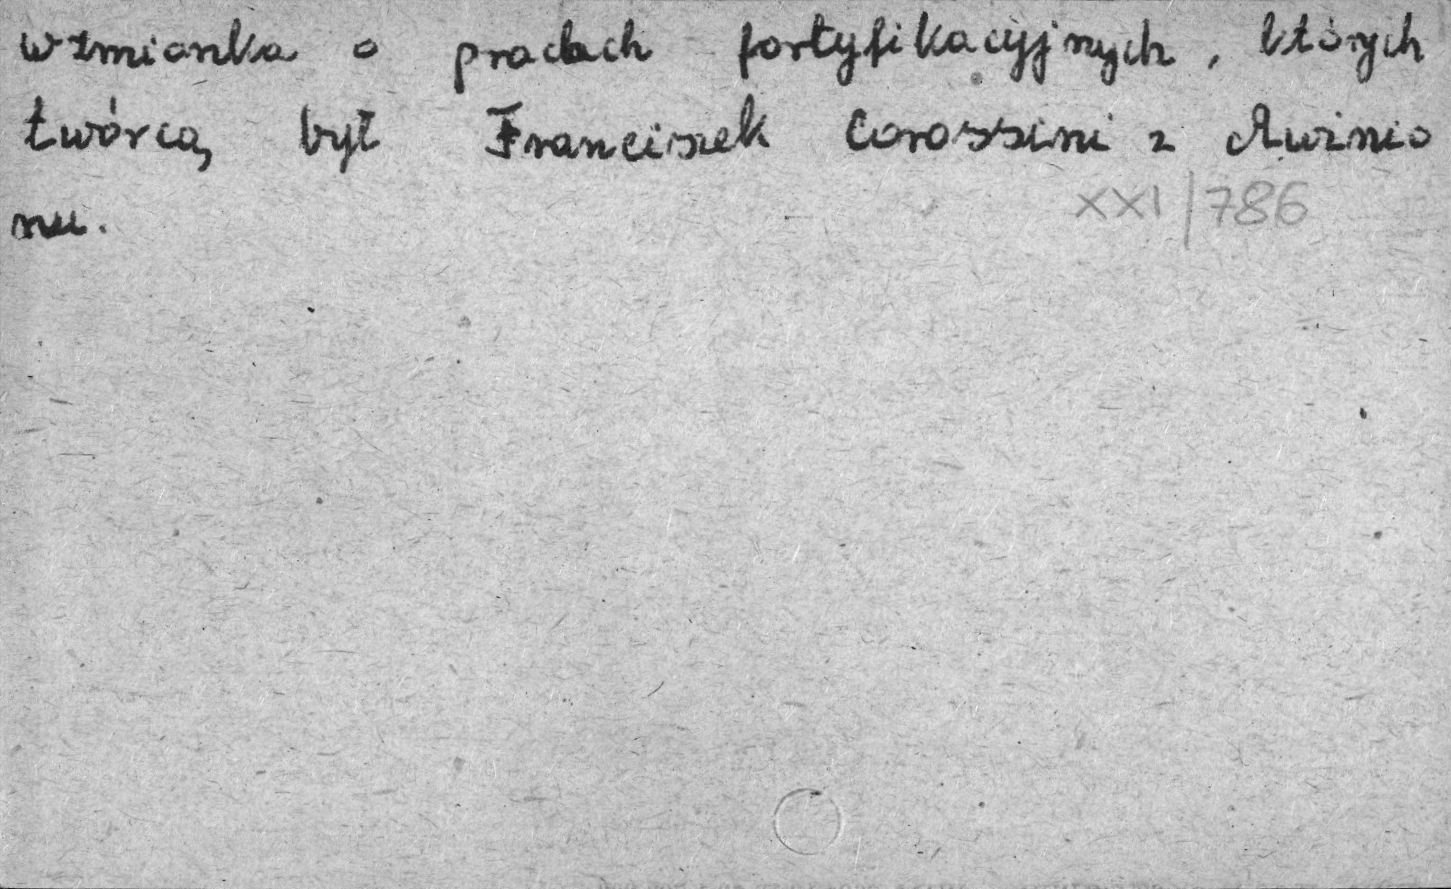 wzmianka o pracach fortyfikacyjnych, których
twórcą był Franciszek Corossini z Awinio
nu.
XXI/786